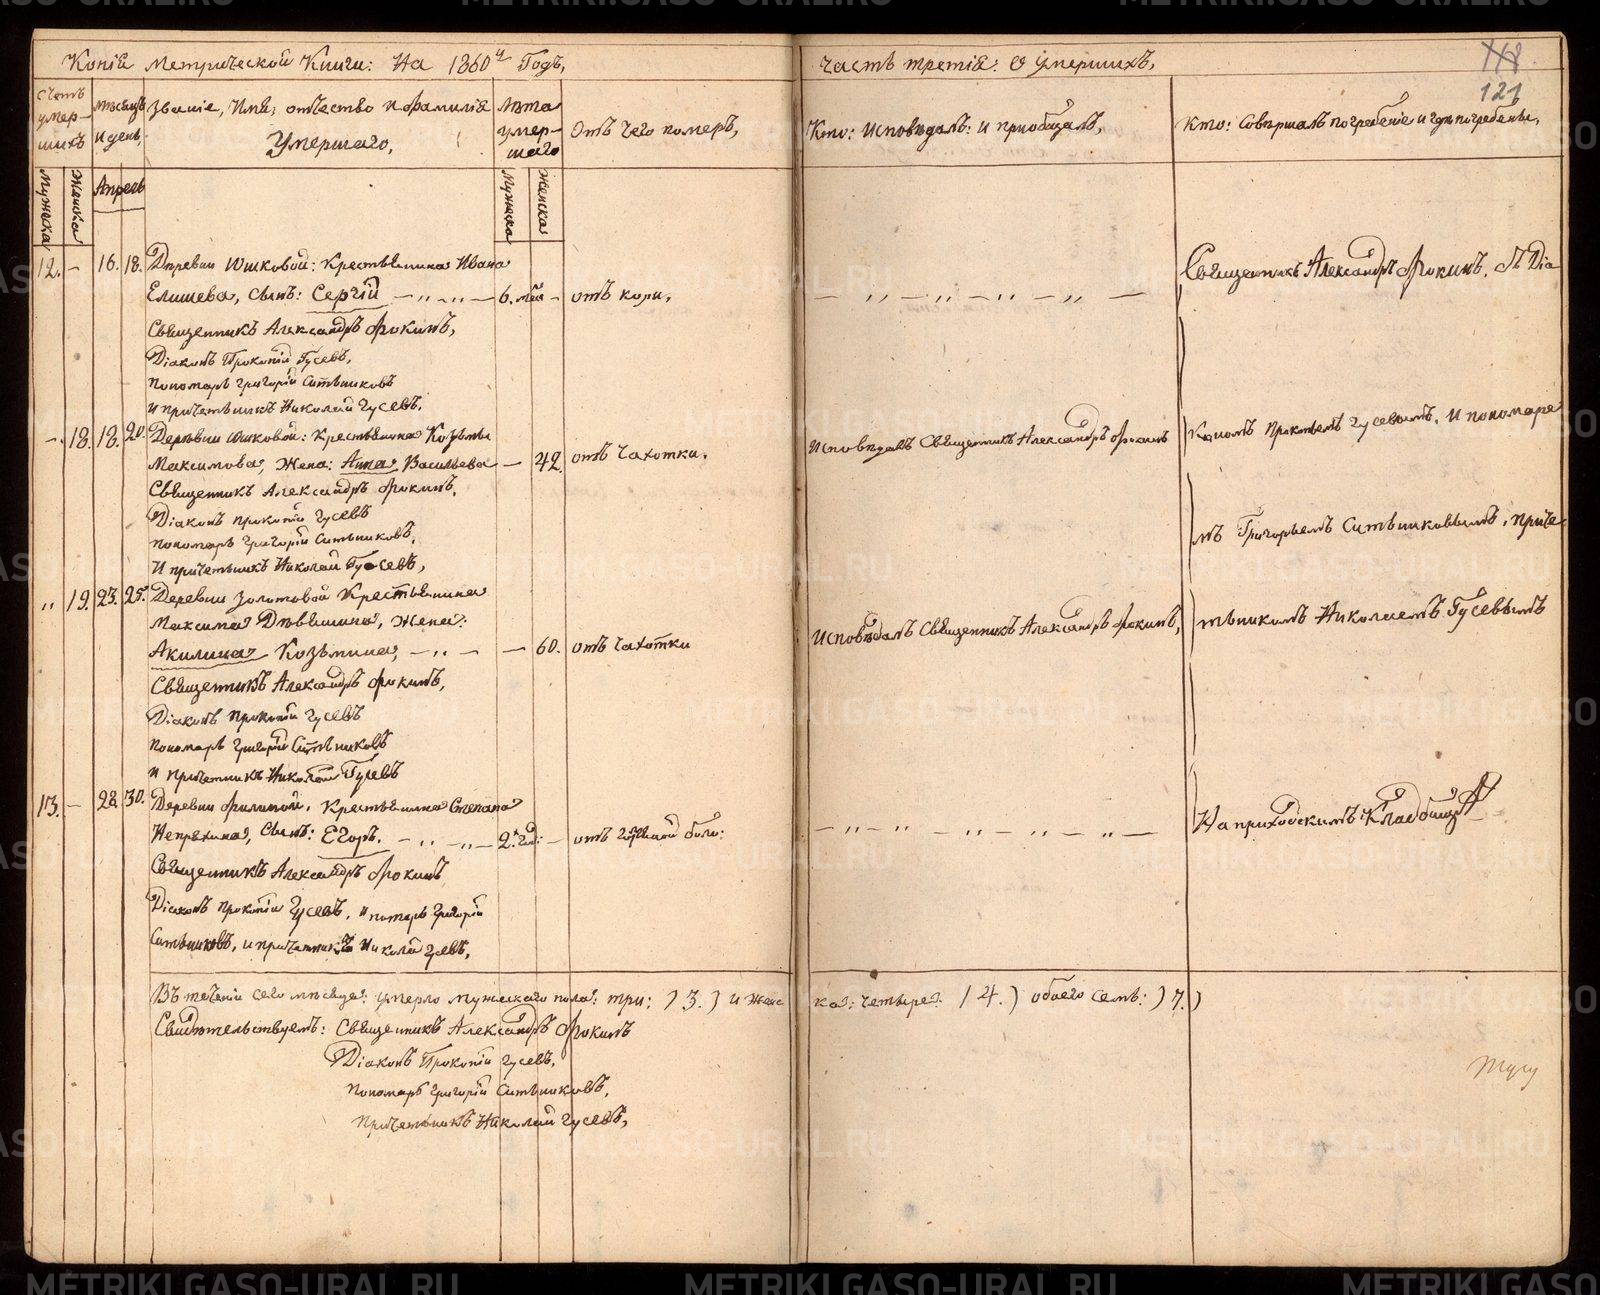 Копія Метрической Книги: На 1860й Годъ,
Часть третія: О Умершихъ,
118
121
Счетъ умер-шихъ
мѣсяцъ и день,
Званіе, Имя, отчество и фамилія
Умершаго,
Лѣта умер-шаго
Отъ чего померъ,
Кто: Исповѣдалъ: и приобщалъ,
Кто: Совѣршалъ погребеніе и гдѣ погребены,
Мужеска
Женска
Апрель
Мужеска
Женска
12. – 16. 18. Деревни Юшковой: Крестьянина Ивана
Елишева, Сынъ: Сергій – „ – „ – 6. мѣся – отъ кори,
– „ – „ – „ – „ –
Священникъ Александръ Фокинъ. Съ Діа
Священникъ Александръ Фокинъ,
Діаконъ Прокопій Гусевъ,
пономарь Григорій Ситниковъ
и причетникъ Николай Гусевъ.
– 18. 18. 20. Деревни Юшковой: Крестьянина Козьмы
Максимова, Жена: Анна Васильева – 42. отъ чахотки.
Исповѣдалъ Священникъ Александръ Фокинъ
кономъ Прокопьемъ Гусевымъ. И пономаре
Священникъ Александръ Фокинъ,
Діаконъ Прокопій Гусевъ
пономарь Григорій Ситниковъ,
И причетникъ Николай Гусевъ,
мъ Григорьемъ Ситьниковымъ, приче-
„ 19. 23. 25. Деревни Золотовой Крестьянина
Максима Девяшина, Жена:
Акилина Козьмина, – „ – – 60. отъ чахотки
Исповѣдалъ Священникъ Александръ Фокинъ,
тьникомъ Николаемъ Гусевымъ
Священникъ Александръ Фокинъ,
Діаконъ Прокопій Гусевъ
пономарь Григорій Ситниковъ
и причетникъ Николай Гусевъ
13. – 28. 30. Деревни Филиной, Крестьянина Степана
Непряхина, Сынъ: Егоръ. – „ – „ – 2. год: – отъ горьной боло:
– „ – „ – „ – „ – „ –
На приходскимъ Кладбищѣ
Священникъ Александръ Фокинъ
Діаконъ Прокопій Гусевъ, пономарь Григорій
Ситниковъ, и причетникъ Николай Гусевъ,
Въ теченіи сего мѣсяца: умерло мужескаго пола: три: ) 3. ) и женс
ка: четыре: ) 4. ) обоего семь: ) 7. )
Свидѣтельствуемъ: Священникъ Александръ Фокинъ
Діаконъ Прокопій Гусевъ,
Пономарь Григорій Ситьниковъ,
Причетьникъ Николай Гусевъ,
METRIKI.GASO-URAL.RU